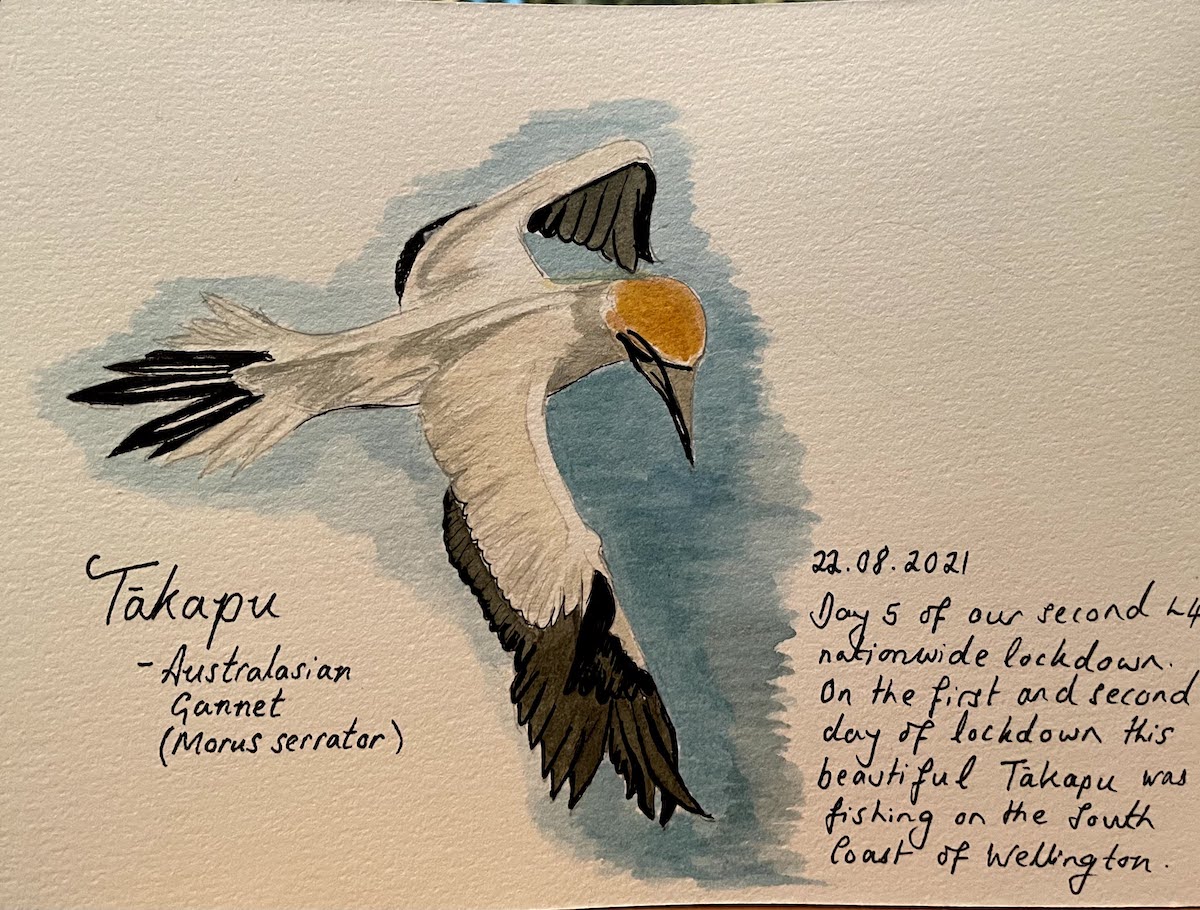 Tākapu
- Australasian
Gannet
(Morus serrator)
22.08.2021
Day 5 of our second L4
nationwide lockdown.
On the first and second
day of lockdown this
beautiful Tākapu was
fishing on the South
Coast of Wellington.